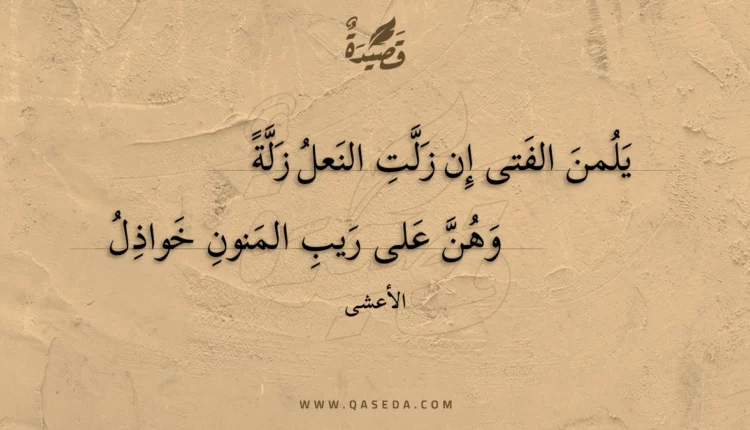 قَصِيدَةٌ
يَلُمنَ الفَتى إِن زَلَّتِ النَعلُ زَلَّةً
وَهُنَّ عَلى رَيبِ المَنونِ خَواذِلُ
الأعشى
WWW.QASEDA.COM